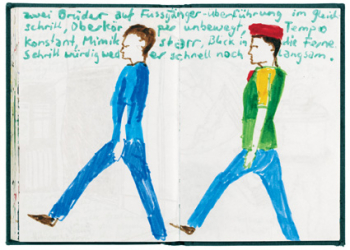 zwei Brüder auf Fussgänger-überführung im gleich
schritt, Oberkörper unbewegt, Tempo
konstant, Mimik starr, Blick in die ferne
Schritt würdig weder schnell noch langsam.